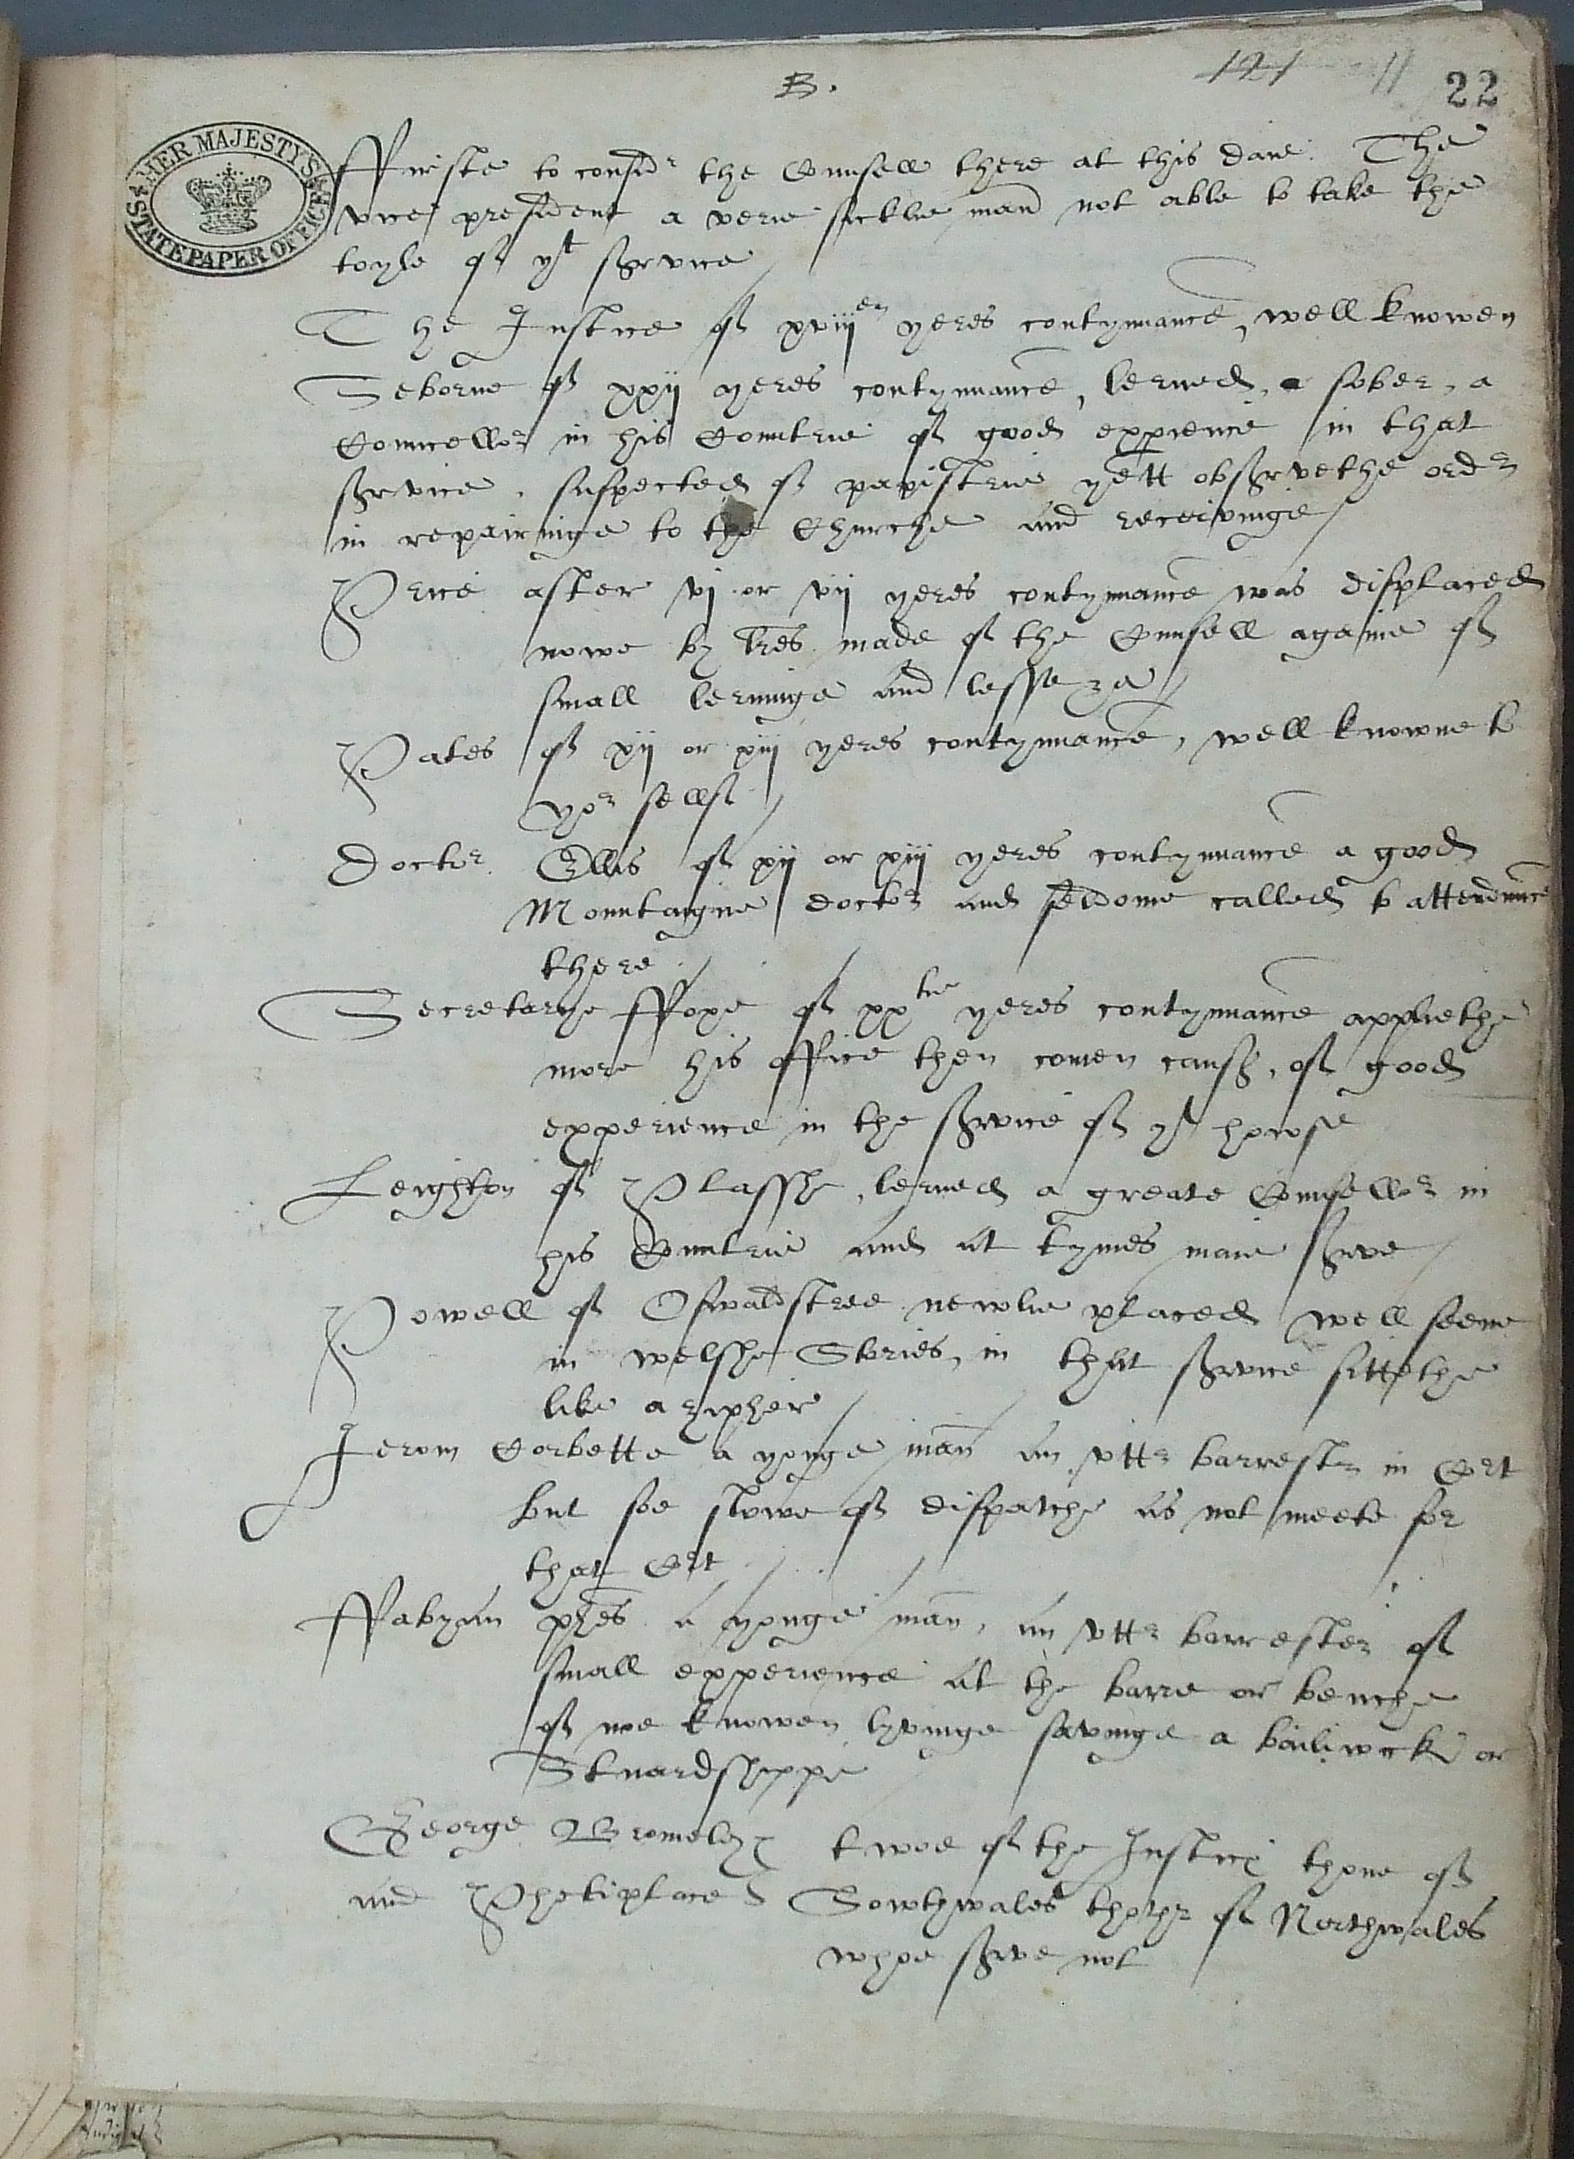 B.
121 11 22
HER MAJESTY'S STATE PAPER OFFICE
ffirste to considr the Counsell there at this daie. The
vice president a verie sicklie man not able to take the
toyle of yt service
The Justice of xviijen yeres contynnance, well knowen
Seborne of xxij yeres contynnance, lerned, a sober, a
Councellor in his Countrie of good experience in that
service, suspected of papistrie yett observethe ordr
in repairinge to the Churche and receivinge
Price after vj or vij yeres contynnance was displaced
nowe by lres made of the Counsell againe of
small lerninge and lesse
Pates of xij or xiij yeres contynnance, well knowne to
yor selff
Doctor Ellis of xij or xiij yeres contynnance a good
Mountaigne doctor and seldome called to attendance
there
Secretarye ffoxe of xxtie yeres contynnance appliethe
more his office then comen causs, of good
experience in the service of yt howse
Leighton of Plasshe, lerned a greate Counsellor in
his Countrie and at tymes maie serve
Powell of Oswaldstree newlie placed well seene
in welshe Stories, in that service sittethe
like a zipher
Jerom Corbette a yonge man an uttr barrestr in Crt
but soe slowe of dispatche as not meete for
that Crt
ffabyan phes a yonge man, an uttr barrester of
small experience at the barre or benche
of noe knowen lyvinge savinge a bailiwicke or
Stuardshippe
George Bromeley twoe of the Justices thone of
and Phetiplace Sowthwales thothr of Northwales
whoe serve not